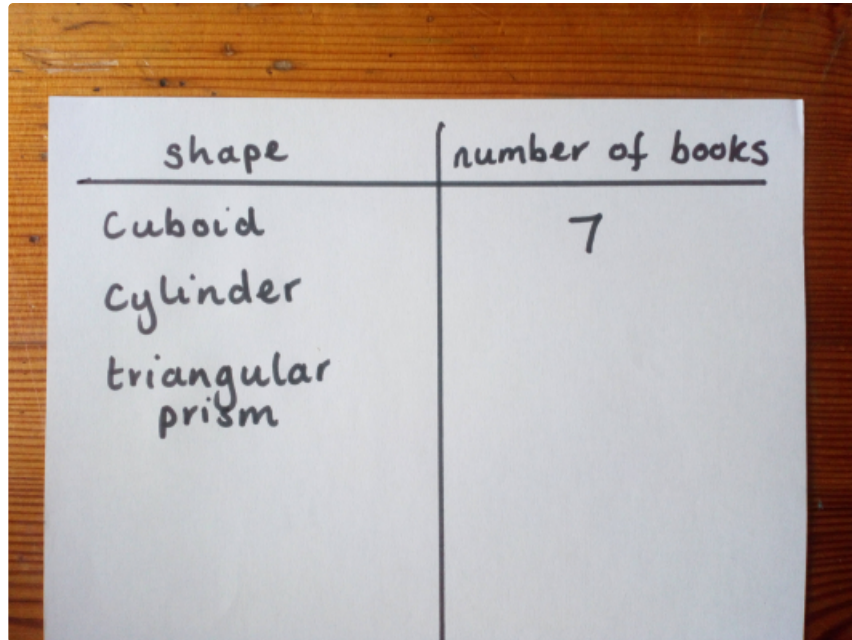 shape number of books
Cuboid 7
Cylinder
triangular
prism